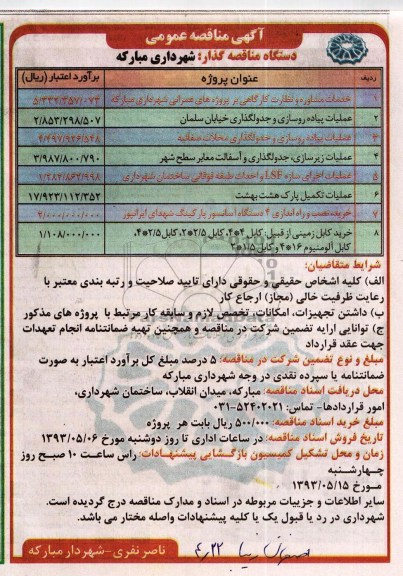 آگهی مناقصه عمومی
دستگاه مناقصه گذار: شهرداری مبارکه
ردیف عنوان پروژه برآورد اعتبار (ریال)
۱ خدمات مشاوره و نظارت کارگاهی بر پروژه های عمرانی شهرداری مبارکه ۵/۳۳۲/۳۵۷/۰۷۳
۲ عملیات پیاده روسازی و جدولگذاری خیابان سلمان ۲/۸۵۳/۲۹۸/۵۰۷
۳ عملیات پیاده روسازی و جدولگذاری محلات صفائیه ۴/۴۹۷/۹۲۶/۵۴۸
۴ عملیات زیرسازی، جدولگذاری و آسفالت معابر سطح شهر ۳/۹۸۷/۸۰۰/۷۹۰
۵ عملیات اجرای سازه LSF و احداث طبقه فوقانی ساختمان شهرداری ۱/۲۸۴/۸۶۲/۹۹۸
۶ عملیات تکمیل پارک هشت بهشت ۱۷/۹۲۳/۱۱۲/۳۵۲
۷ خرید، نصب و راه اندازی ۴ دستگاه آسانسور پارکینگ شهدای ایرانپور ۲/۰۰۰/۰۰۰/۰۰۰
۸ خرید کابل زمینی از قبیل: کابل ۴*۴، کابل ۲/۵*۲، کابل ۲/۵*۴، ۱/۱۰۸/۰۰۰/۰۰۰
کابل آلومنیوم ۱۶*۴ و کابل ۱/۵*۲
شرایط متقاضیان:
الف) کلیه اشخاص حقیقی و حقوقی دارای تایید صلاحیت و رتبه بندی معتبر با
رعایت ظرفیت خالی (مجاز) ارجاع کار
ب) داشتن تجهیزات، امکانات، تخصص لازم و سابقه کار مرتبط با پروژه های مذکور
ج) توانایی ارایه تضمین شرکت در مناقصه و همچنین تهیه ضمانتنامه انجام تعهدات
جهت عقد قرارداد
مبلغ و نوع تضمین شرکت در مناقصه: ۵ درصد مبلغ کل برآورد اعتبار به صورت
ضمانتنامه یا سپرده نقدی در وجه شهرداری مبارکه
محل دریافت اسناد مناقصه: مبارکه، میدان انقلاب، ساختمان شهرداری،
امور قراردادها- تماس: ۵۲۴۰۲۰۲۱-۰۳۱
مبلغ خرید اسناد مناقصه: ۵۰۰/۰۰۰ ریال بابت هر پروژه
تاریخ فروش اسناد مناقصه: در ساعات اداری تا روز دوشنبه مورخ ۱۳۹۳/۰۵/۰۶
زمان و محل تشکیل کمیسیون بازگشایی پیشنهادات: راس ساعت ۱۰ صبح روز
چهارشنبه
مورخ ۱۳۹۳/۰۵/۱۵
سایر اطلاعات و جزییات مربوطه در اسناد و مدارک مناقصه درج گردیده است.
شهرداری در رد یا قبول یک یا کلیه پیشنهادات واصله مختار می باشد.
ناصر نفری -شهردار مبارکه
۴/۲۲